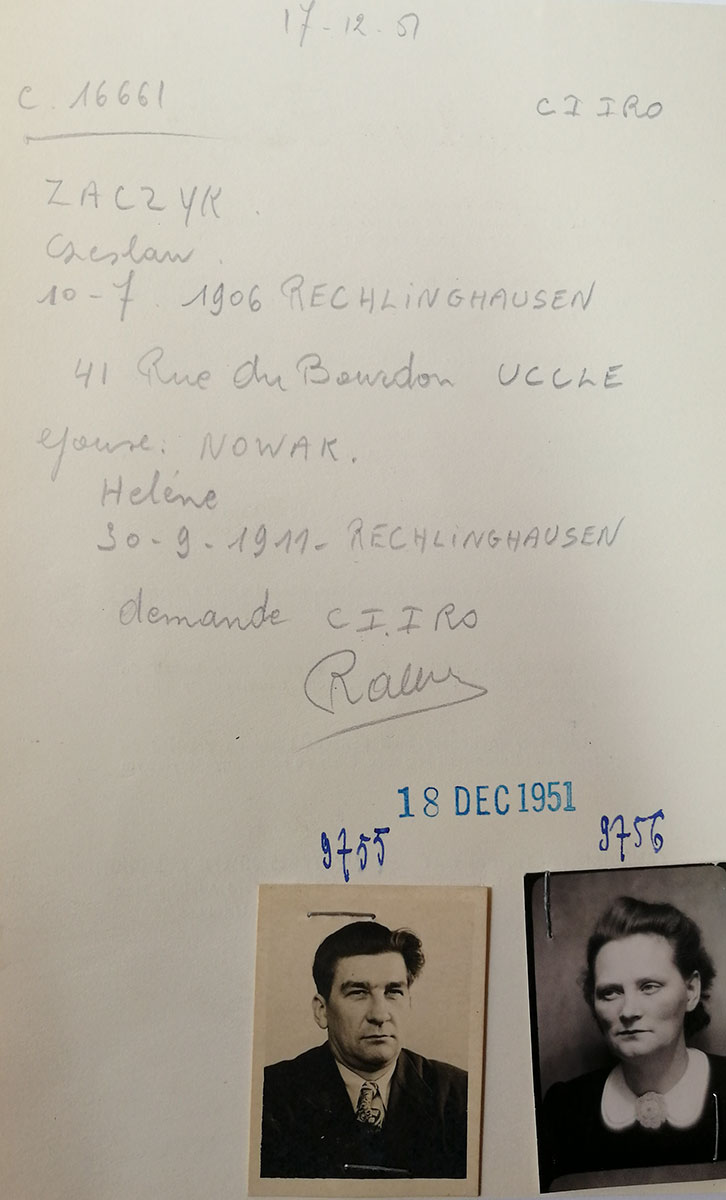 17-12-51
C. 16661
CI IRO
ZACZYK.
Czeslaw.
10-7. 1906 RECHLINGHAUSEN
41 Rue du Bourdon UCCLE
epouse: NOWAK.
Heléne
30-9-1911- RECHLINGHAUSEN
demande CI.IRO
18 DEC 1951
9755
9756